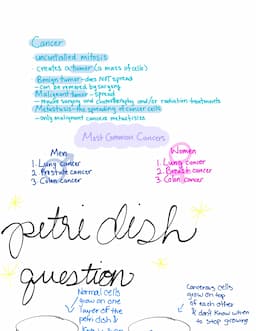 Cancer
uncontrolled mitosis
creates a tumor (a mass of cells)
Benign tumor - does NOT spread
- can be removed by surgery
Malignant tumor - spread
- require surgery and chemotheraphy and/or radiation treatments
Metastasis - the spreading of cancer cells
- only malignant cancers metastisize
Most Common Cancers
Men
Women
1. Lung cancer
1. Lung cancer
2. Prostate cancer
2. Breast cancer
3. Colon cancer
3. Colon cancer
petri dish
question
Normal cells
grow on one
layer of the
petri dish &
Cancerous cells
grow on top
of each other
& don't know when
to stop growing